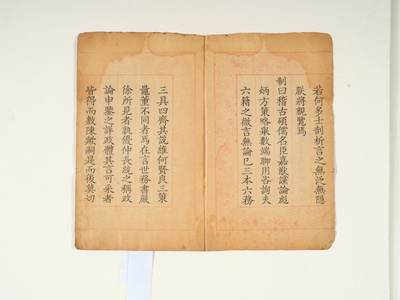 若何多士剖析言之無泛無隱
朕將親覽焉
制曰稽古碩儒名臣嘉猷讜論彪
炳方策略舉數端聊用咨詢夫
六籍之微言無論已三本六務
三具四齊其說維何賢良三策
量董不同者為在言世務書嚴
徐所見者孰優仲長統之稱政
論申鑒之詳政體其言可采者
皆得而數陳歟嗣是而後莫切